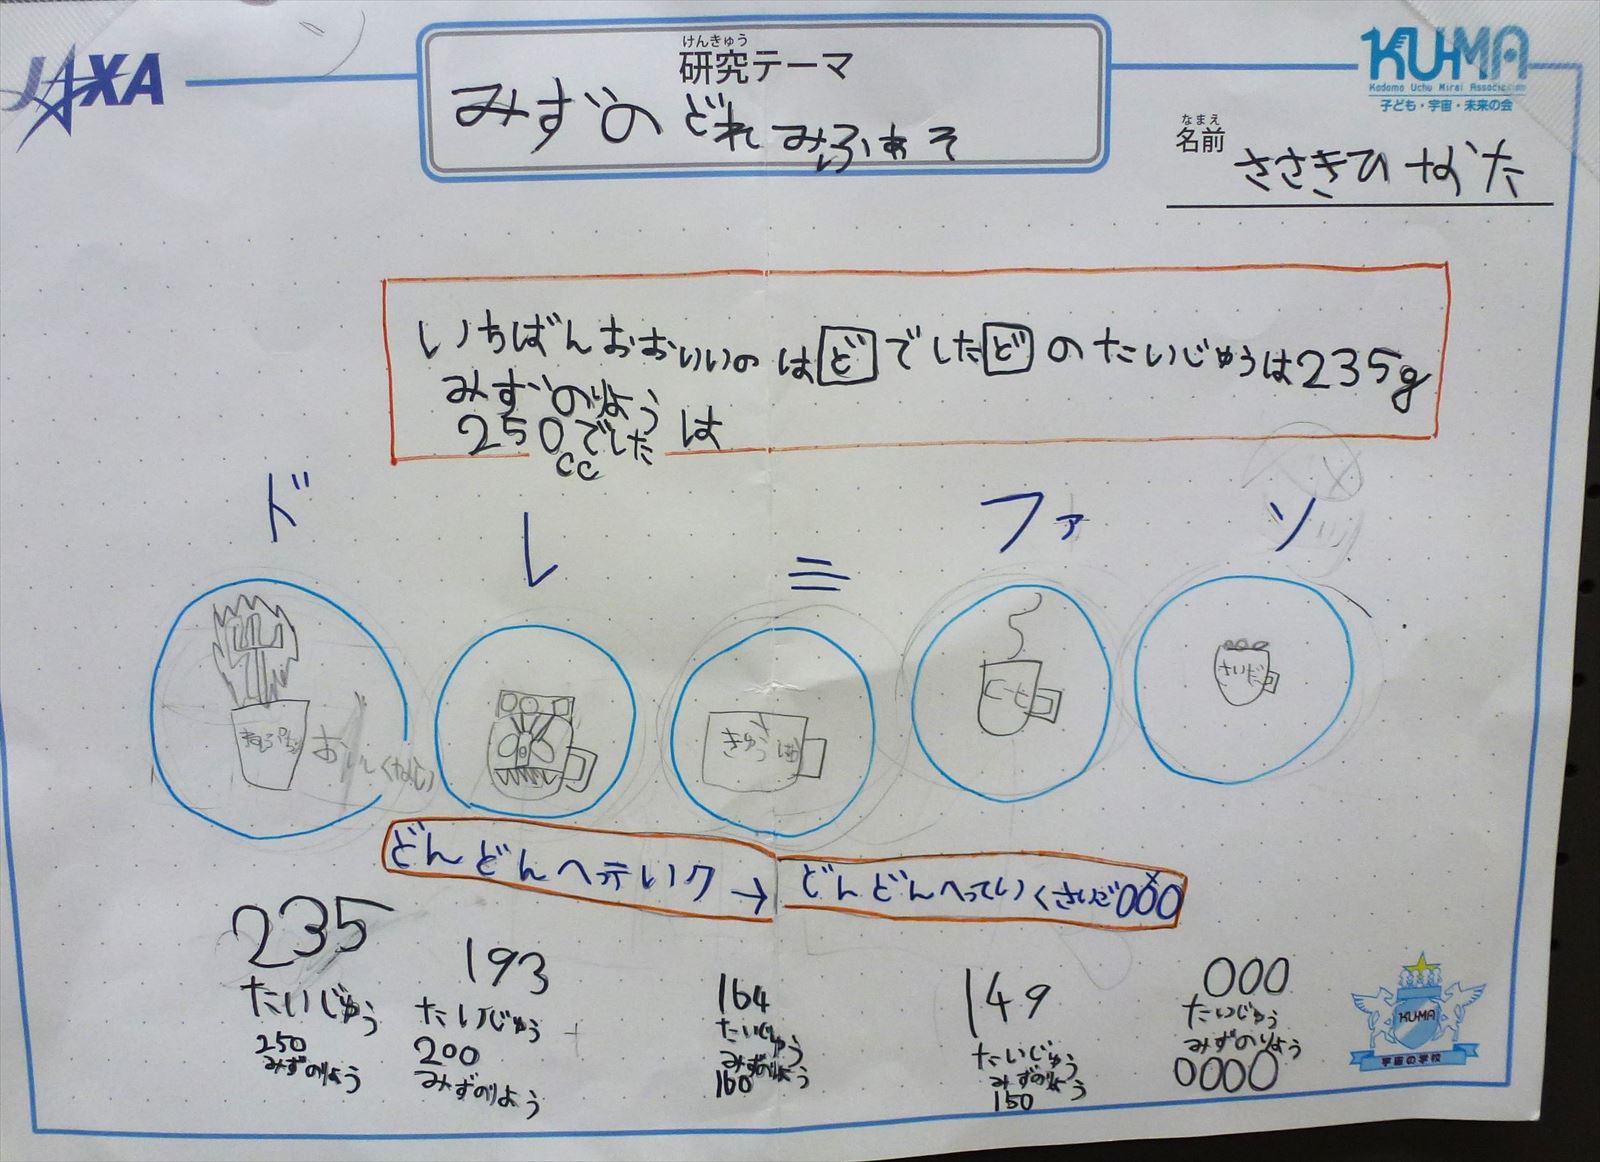 JAXA
けんきゅう
研究テーマ
みずの どれみふぁそ
KU-MA
Kodomo Uchu Mirai Association
子ども・宇宙・未来の会
なまえ
名前
ささきひなた
いちばんおおいいのは ど でした ど のたいじゅうは235g
みずのりょう
250でした は
cc
ド
レ
ミ
ファ
ソ
おいしくない
きゅうしょく
こーヒー
さいだー
どんどんヘッテいク→
どんどんへっていくさいご000
235
たいじゅう
250
みずのりょう
193
たいじゅう
200
みずのりょう
164
たいじゅう
みずのりょう
160
149
たいじゅう
みずのりょう
150
000
たいじゅう
みずのりょう
0000
KU-MA
宇宙の学校